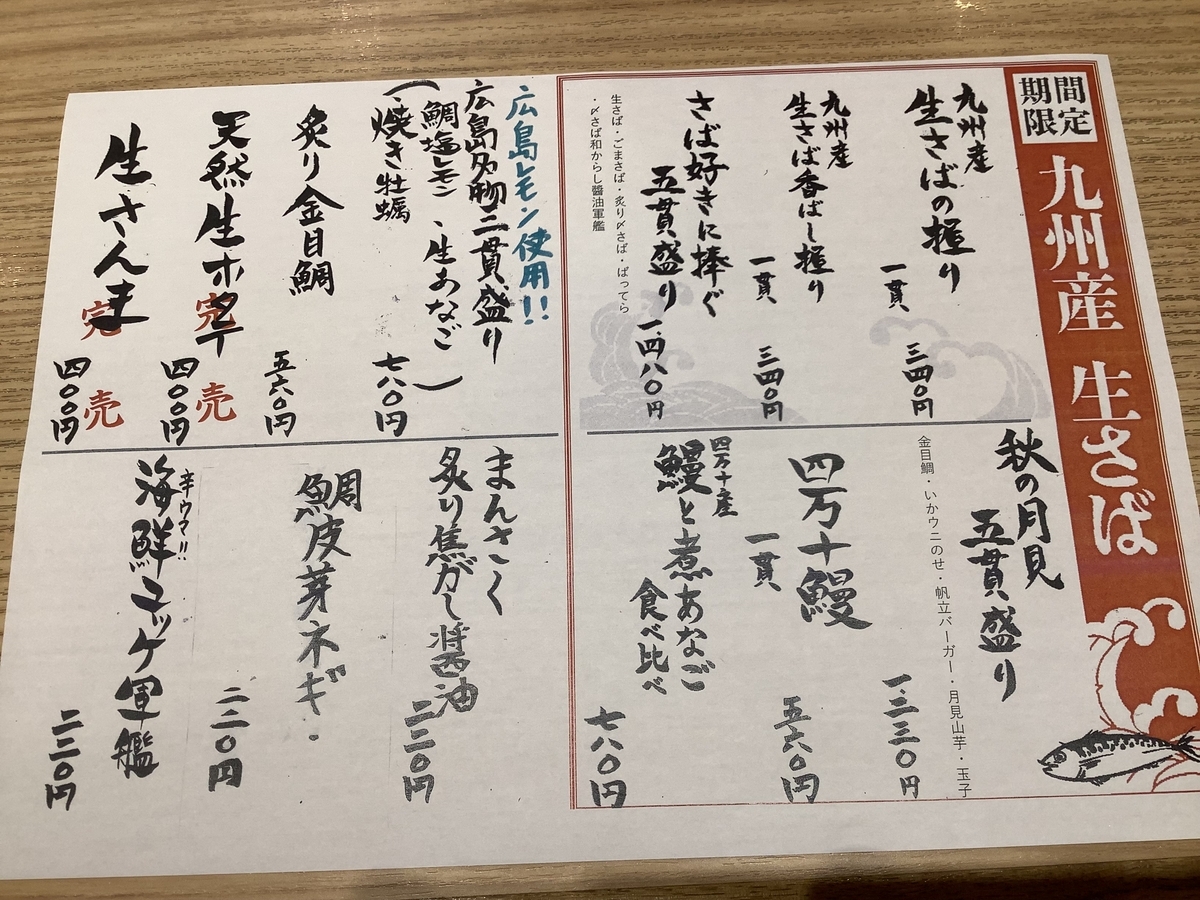 期間
限定
九州産 生さば
九州産
生さばの握り
一貫
三四〇円
九州産
生さば香ばし握り
一貫
三四〇円
さば好きに捧ぐ
五貫盛り
一、四八〇円
生さば・ごまさば・炙り〆さば・ばってら
・〆さば和からし醤油軍艦
秋の月見
五貫盛り
金目鯛・いかウニのせ・帆立バーガー・月見山芋・玉子
一、三三〇円
四万十鰻
一貫
五六〇円
四万十産
鰻と煮あなご
食べ比べ
七八〇円
広島レモン使用!!
広島名物三貫盛り
(・鯛塩レモン ・生あなご
・焼き牡蠣)
七八〇円
炙り金目鯛
五六〇円
天然生ホタテ
完売
四〇〇円
生さんま
完売
四〇〇円
まんさく
炙り焦がし醤油
二二〇円
鯛皮芽ネギ
二二〇円
辛ウマ!!
海鮮ユッケ軍艦
二二〇円